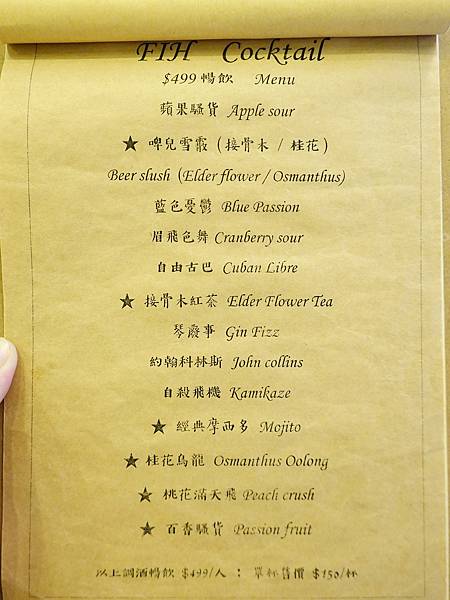 FIH Cocktail
$499 暢飲 Menu
蘋果騷貨 Apple sour
★ 啤兒雪霰 (接骨木 / 桂花)
Beer slush (Elder flower / Osmanthus)
藍色憂鬱 Blue Passion
眉飛色舞 Cranberry sour
自由古巴 Cuban Libre
★ 接骨木紅茶 Elder Flower Tea
琴廢事 Gin Fizz
約翰科林斯 John collins
自殺飛機 Kamikaze
★ 經典摩西多 Mojito
★ 桂花烏龍 Osmanthus Oolong
★ 桃花滿天飛 Peach crush
★ 百香騷貨 Passion fruit
以上調酒暢飲 $499/人 : 單杯售價 $150/杯